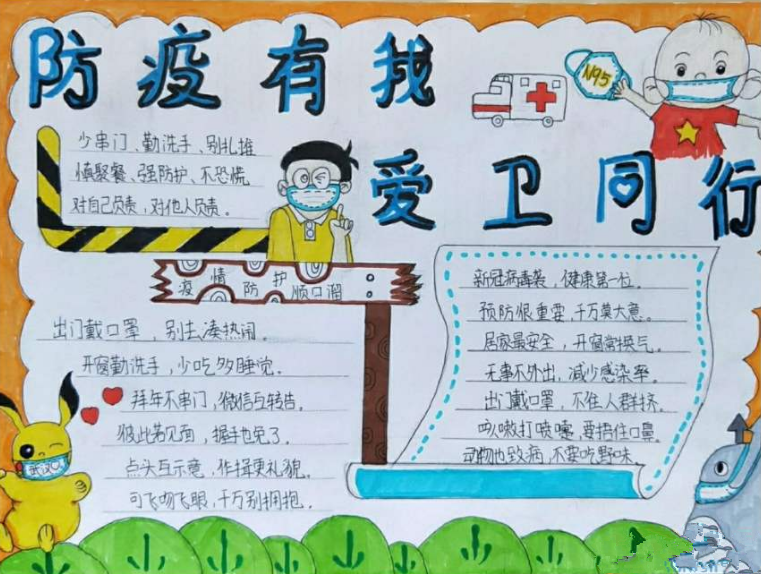 防疫有我
爱卫同行
N95
少串门、勤洗手、别扎堆
慎聚餐、强防护、不恐慌
对自己负责,对他人负责。
疫情防护顺口溜
出门戴口罩,别去凑热闹。
开窗勤洗手,少吃多睡觉。
拜年不串门,微信互转告。
彼此若见面,握手也免了。
点头互示意,作揖更礼貌。
可飞吻飞眼,千万别拥抱。
武汉
新冠病毒袭,健康第一位。
预防很重要,千万莫大意。
居家最安全,开窗常换气。
无事不外出,减少感染率。
出门戴口罩,不往人群挤。
咳嗽打喷嚏,要捂住口鼻。
动物也致病,不要吃野味